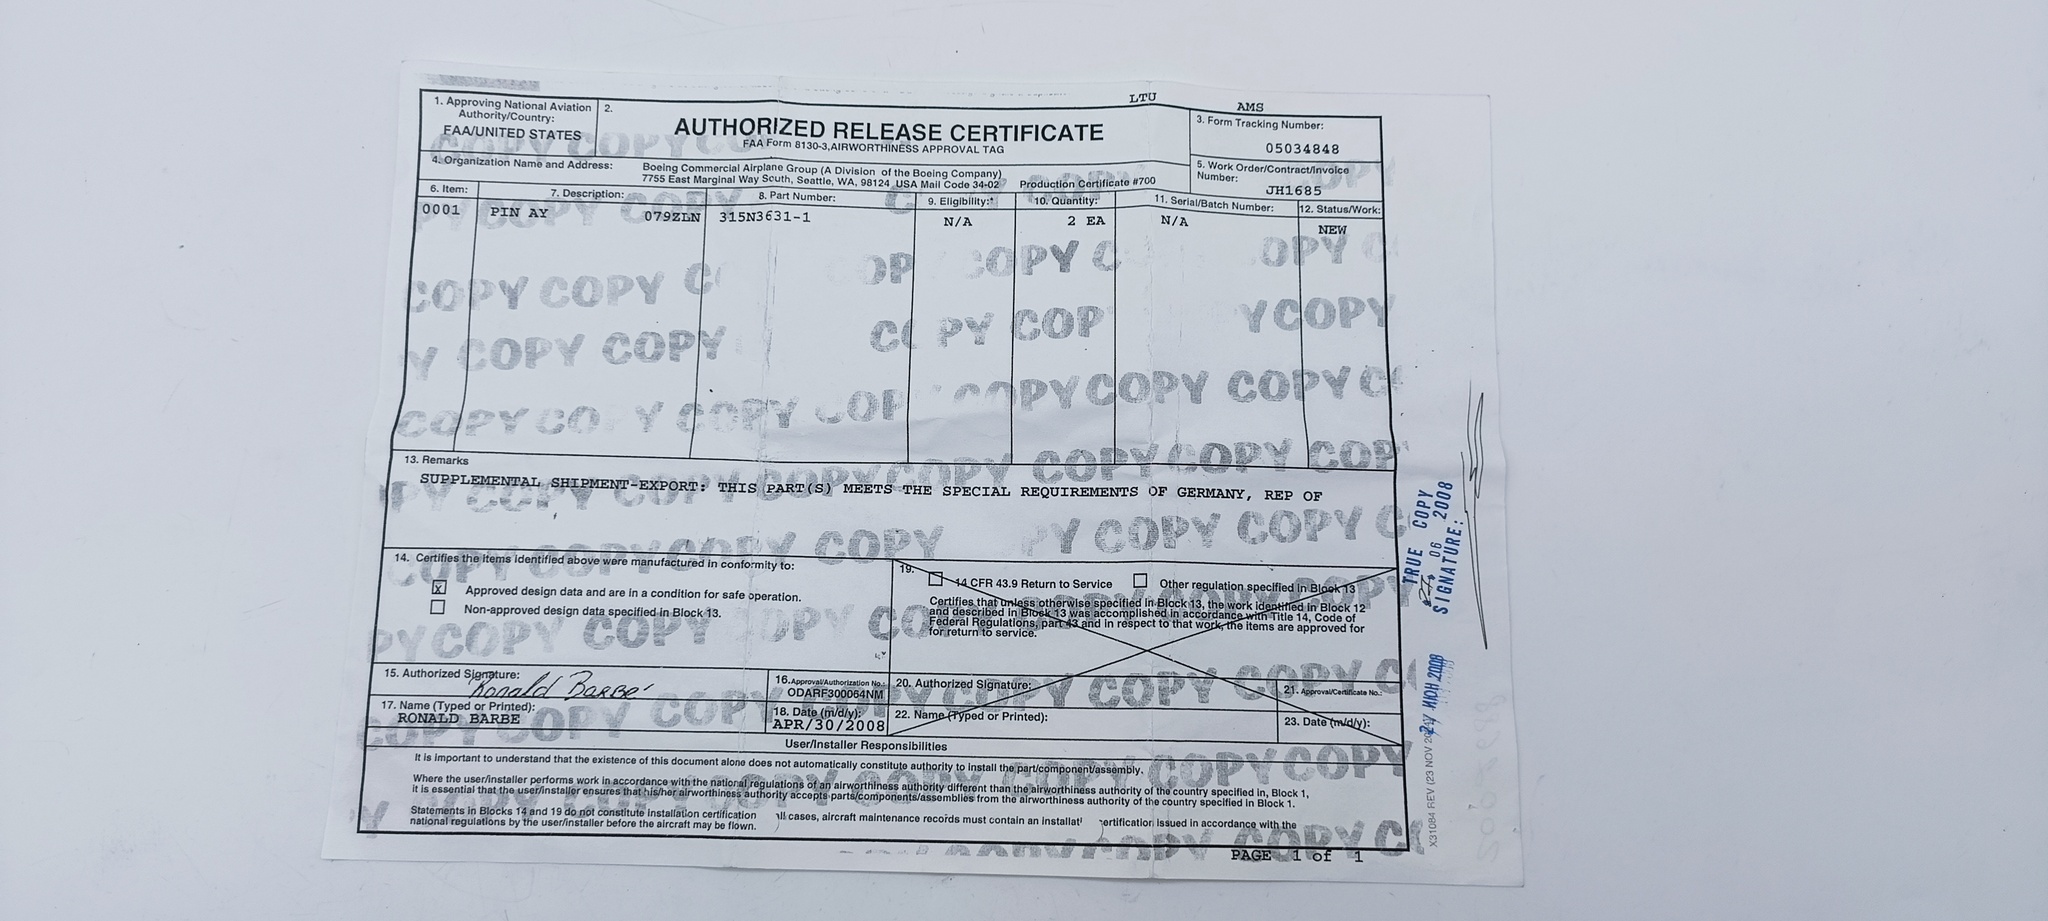 LTU AMS
1. Approving National Aviation Authority/Country:
FAA/UNITED STATES
2.
AUTHORIZED RELEASE CERTIFICATE
FAA Form 8130-3,AIRWORTHINESS APPROVAL TAG
3. Form Tracking Number:
05034848
4. Organization Name and Address:
Boeing Commercial Airplane Group (A Division of the Boeing Company)
7755 East Marginal Way South, Seattle, WA, 98124 USA Mail Code 34-02 Production Certificate #700
5. Work Order/Contract/Invoice
Number:
JH1685
6. Item: 7. Description: 8. Part Number: 9. Eligibility:* 10. Quantity: 11. Serial/Batch Number: 12. Status/Work:
0001 PIN AY 079ZLN 315N3631-1 N/A 2 EA N/A NEW
13. Remarks
SUPPLEMENTAL SHIPMENT-EXPORT: THIS PART(S) MEETS THE SPECIAL REQUIREMENTS OF GERMANY, REP OF
14. Certifies the items identified above were manufactured in conformity to:
X Approved design data and are in a condition for safe operation.
Non-approved design data specified in Block 13.
19.
14 CFR 43.9 Return to Service Other regulation specified in Block 13
Certifies that unless otherwise specified in Block 13, the work identified in Block 12
and described in Block 13 was accomplished in accordance with Title 14, Code of
Federal Regulations, part 43 and in respect to that work, the items are approved for
for return to service.
15. Authorized Signature:
Ronald Barbe
16. Approval/Authorization No.:
ODARF300064NM
20. Authorized Signature:
21. Approval/Certificate No.:
17. Name (Typed or Printed):
RONALD BARBE
18. Date (m/d/y):
APR/30/2008
22. Name (Typed or Printed):
23. Date (m/d/y):
User/Installer Responsibilities
It is important to understand that the existence of this document alone does not automatically constitute authority to install the part/component/assembly.
Where the user/installer performs work in accordance with the national regulations of an airworthiness authority different than the airworthiness authority of the country specified in, Block 1,
it is essential that the user/installer ensures that his/her airworthiness authority accepts parts/components/assemblies from the airworthiness authority of the country specified in Block 1.
Statements in Blocks 14 and 19 do not constitute installation certification all cases, aircraft maintenance records must contain an installat ertification issued in accordance with the
national regulations by the user/installer before the aircraft may be flown.
PAGE 1 of 1
TRUE COPY
06 2008
SIGNATURE:
X31084 REV (23 NOV
COPY COPY COPY